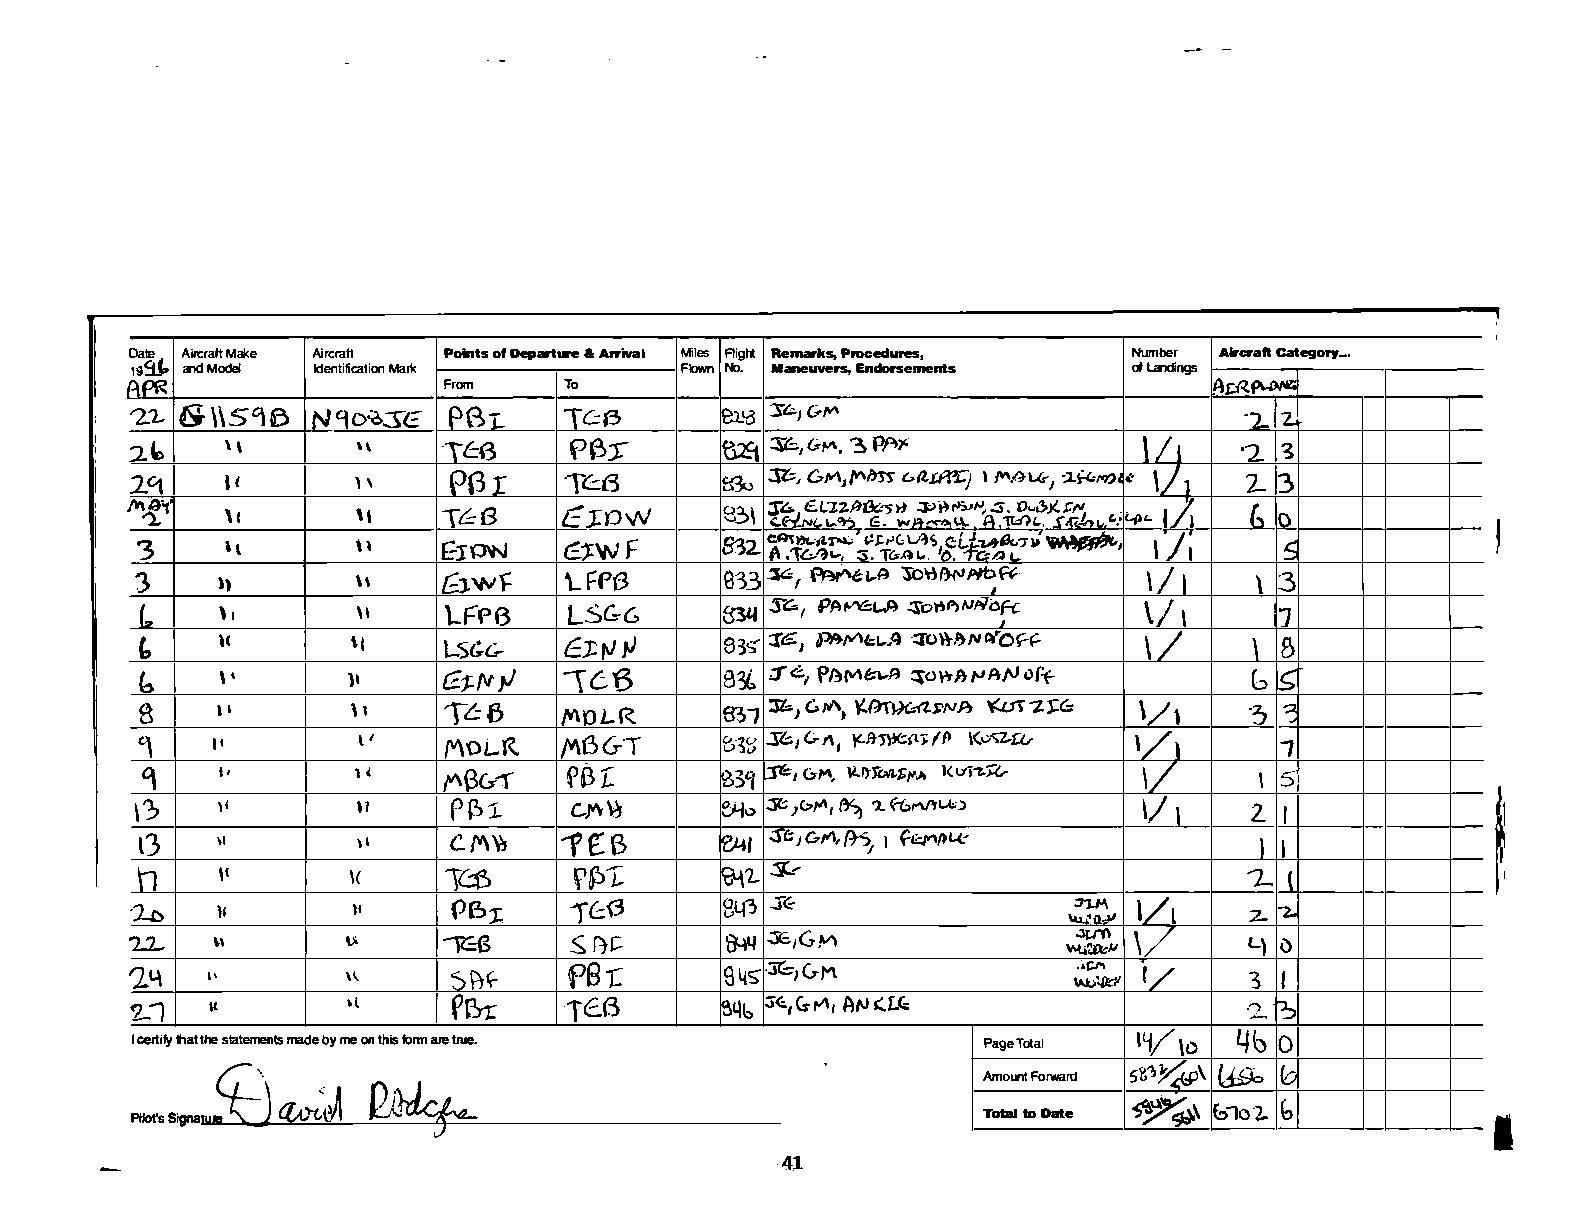 Date Aircraft Make Aircraft Points of Departure & Arrival Miles Flight Remarks, Procedures, Number Aircraft Category...
1996 and Model Identification Mark Flown No. Maneuvers, Endorsements of Landings
APR From To AERPLANE
22 G1159B N908JE PBI TEB 828 JE, GM 2 2
26 " " TEB PBI 829 JE, GM, 3 PAX 1/1 2 3
29 " " PBI TEB 830 JE, GM, 1 MALE, 2 FEMALE 1/1 2 3
MAY
2 " " TEB EIDW 831 JE, ELIZABETH JOHNSON, S. DUBKIN 1/1 6 0
3 " " EIDW EIWF 832 1/1 5
A. TEAL, S. TEAL, O. TEAL
3 " " EIWF LFPB 833 JE, PAMELA JOHANANOFF 1/1 1 3
6 " " LFPB LSGG 834 JE, PAMELA JOHANNOFF 1/1 7
6 " " LSGG EINN 835 JE, PAMELA JOHANA'OFF 1/ 1 8
6 " " EINN TEB 836 JE, PAMELA JOHANANOFF 6 5
8 " " TEB MDLR 837 JE, GM, KATHERINA KUTZIG 1/1 3 3
9 " " MDLR MBGT 838 JE, GM, 1/1 7
9 " " MBGT PBI 839 JE, GM, KUTZIG 1/ 1 5
13 " " PBI CMH 840 JE, GM, AS, 2 FEMALES 1/1 2 1
13 " " CMH TEB 841 JE, GM, AS, 1 FEMALE 1 1
17 " " TEB PBI 842 JE 2 1
20 " " PBI TEB 843 JE JIM 1/1 2 2
22 " " TEB SAF 844 JE, GM JIM 1/ 4 0
24 " " SAF PBI 845 JE, GM JIM 1/ 3 1
27 " " PBI TEB 846 JE, GM, ANKIE 2 3
I certify that the statements made by me on this form are true. Page Total 14/10 46 0
Amount Forward 5832/5601 6656 6
Pilot's Signature David Rodgers Total to Date 5846/5611 6702 6
41